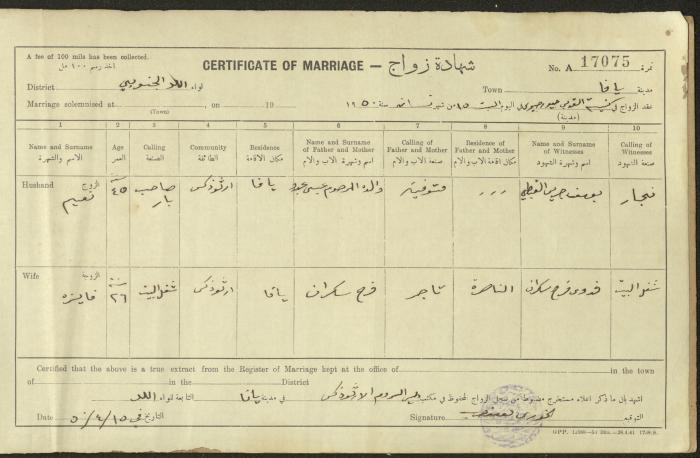 A fee of 100 mils has been collected.
أخذ رسم ١٠٠ مل
CERTIFICATE OF MARRIAGE — شهادة زواج
No. A 17075 نمرة
District لواء اللد الجنوبي
Town مدينة يافا
Marriage solemnised at (Town), on 19
عقد الزواج في (مدينة) اليوم السبت ١٥ من شهر سنة ١٩٥٠
1 2 3 4 5 6 7 8 9 10
Name and Surname Age Calling Community Residence Name and Surname of Father and Mother Calling of Father and Mother Residence of Father and Mother Name and Surname of Witnesses Calling of Witnesses
الاسم والشهرة العمر الصنعة الطائفة مكان الاقامة اسم وشهرة الاب والام صنعة الاب والام مكان اقامة الاب والام اسم وشهرة الشهود صنعة الشهود
Husband الزوج
نعيم ٤٥ سنة صاحب بار ارثوذكس يافا والده المرحوم عيسى متوفية يوسف نجار
Wife الزوجة
فايزه ٢٦ سنة شغل البيت ارثوذكس يافا فرح سكران تاجر الناصرة فدوى فرح سكران شغل البيت
Certified that the above is a true extract from the Register of Marriage kept at the office of in the town
of in the District
اشهد بان ما ذكر اعلاه مستخرج مضبوط من سجل الزواج المحفوظ في مكتب الروم الارثوذكس في مدينة يافا التابعة للواء اللد
Date التاريخ في ١٥/٤/٥٠
Signature التوقيع